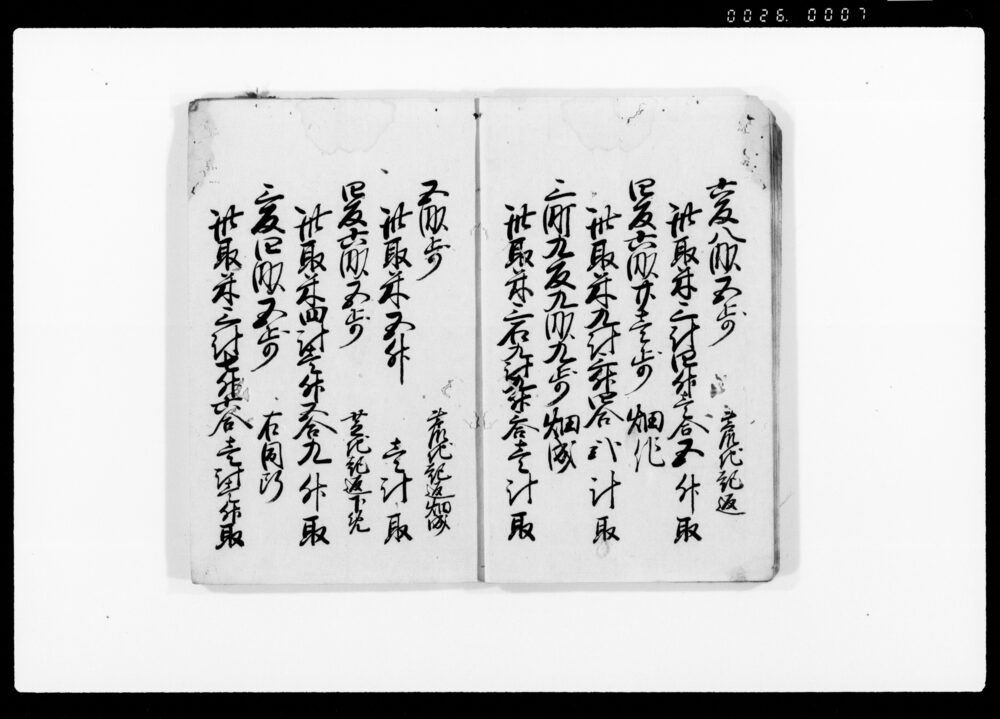 0026. 0007
六反八畝五歩 荒代起返
此取米三斗四升壱合 五升取
四反六畝廿壱歩 畑作
此取米九斗三升四合 弐斗取
三町九反九畝九歩 畑成
此取米三石九斗九升三合 壱斗取
五畝歩 荒代起返畑成
此取米五升 壱斗取
四反六畝五歩 芝代起返下免
此取米四斗壱升六合 九升取
三反四畝五歩 右同断
此取米三斗七升六合 壱斗壱升取